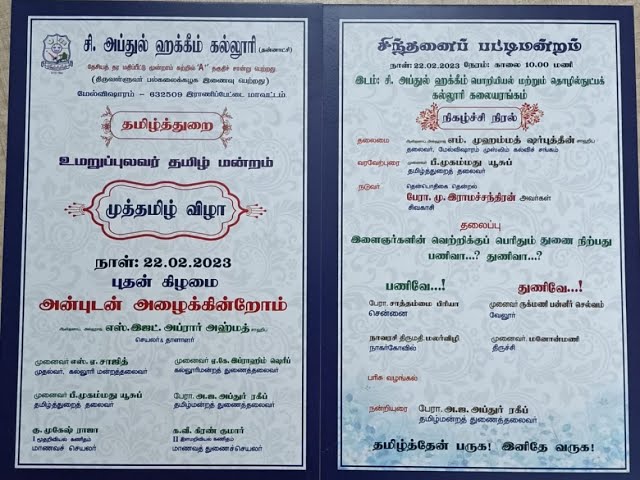 சி. அப்துல் ஹக்கீம் கல்லூரி (தன்னாட்சி)
தேசியத் தர மதிப்பீட்டு மூன்றாம் சுற்றில் 'A' தகுதிச் சான்று பெற்றது
(திருவள்ளுவர் பல்கலைக்கழக இணைவு பெற்றது)
மேல்விஷாரம் – 632509 இராணிப்பேட்டை மாவட்டம்
தமிழ்த்துறை
உமறுப்புலவர் தமிழ் மன்றம்
முத்தமிழ் விழா
நாள்: 22.02.2023
புதன் கிழமை
அன்புடன் அழைக்கின்றோம்
எஸ்.இஜட். அப்ரார் அஹ்மத் சாஹிப்
செயலர் & தாளாளர்
முனைவர் எஸ். ஏ. சாஜித்
முதல்வர், கல்லூரி மன்றத்தலைவர்
முனைவர் ஏ.கே. இப்ராஹிம் ஷெரீப்
கல்லூரிமன்றத் துணைத்தலைவர்
முனைவர் பி.முகம்மது யூசுப்
தமிழ்த்துறைத் தலைவர்
பேரா. அ.ஐ. அப்துர் ரகீப்
தமிழ்மன்றத் துணைத்தலைவர்
கு. முகேஷ் ராஜா
I முதுஅறிவியல் கணிதம்
மாணவச் செயலர்
க.வி. கிரண் குமார்
II இளமறிவியல் கணிதம்
மாணவத் துணைச்செயலர்
சிந்தனைப் பட்டிமன்றம்
நாள்: 22.02.2023 நேரம்: காலை 10.00 மணி
இடம்: சி. அப்துல் ஹக்கீம் பொறியியல் மற்றும் தொழில்நுட்பக்
கல்லூரி கலையரங்கம்
நிகழ்ச்சி நிரல்
தலைமை : எம். முஹம்மத் ஷர்புத்தீன் சாஹிப்
தலைவர், மேல்விஷாரம் முஸ்லிம் கல்விச் சங்கம்
வரவேற்புரை : முனைவர் பி.முகம்மது யூசுப்
தமிழ்த்துறைத் தலைவர்
நடுவர் : தென்பொதிகை தென்றல்
பேரா. மு. இராமச்சந்திரன் அவர்கள்
சிவகாசி
தலைப்பு
இளைஞர்களின் வெற்றிக்குப் பெரிதும் துணை நிற்பது
பணிவா...? துணிவா...?
பணிவே...!
பேரா. சாத்தம்மை பிரியா
சென்னை
நாவரசி திருமதி மலர்விழி
நாகர்கோவில்
துணிவே...!
முனைவர் ருக்மணி பன்னீர் செல்வம்
வேலூர்
முனைவர். மனோன்மணி
திருச்சி
பரிசு வழங்கல் :
நன்றியுரை : பேரா. அ.ஐ. அப்துர் ரகீப்
தமிழ்மன்றத் துணைத்தலைவர்
தமிழ்த்தேன் பருக! இனிதே வருக!